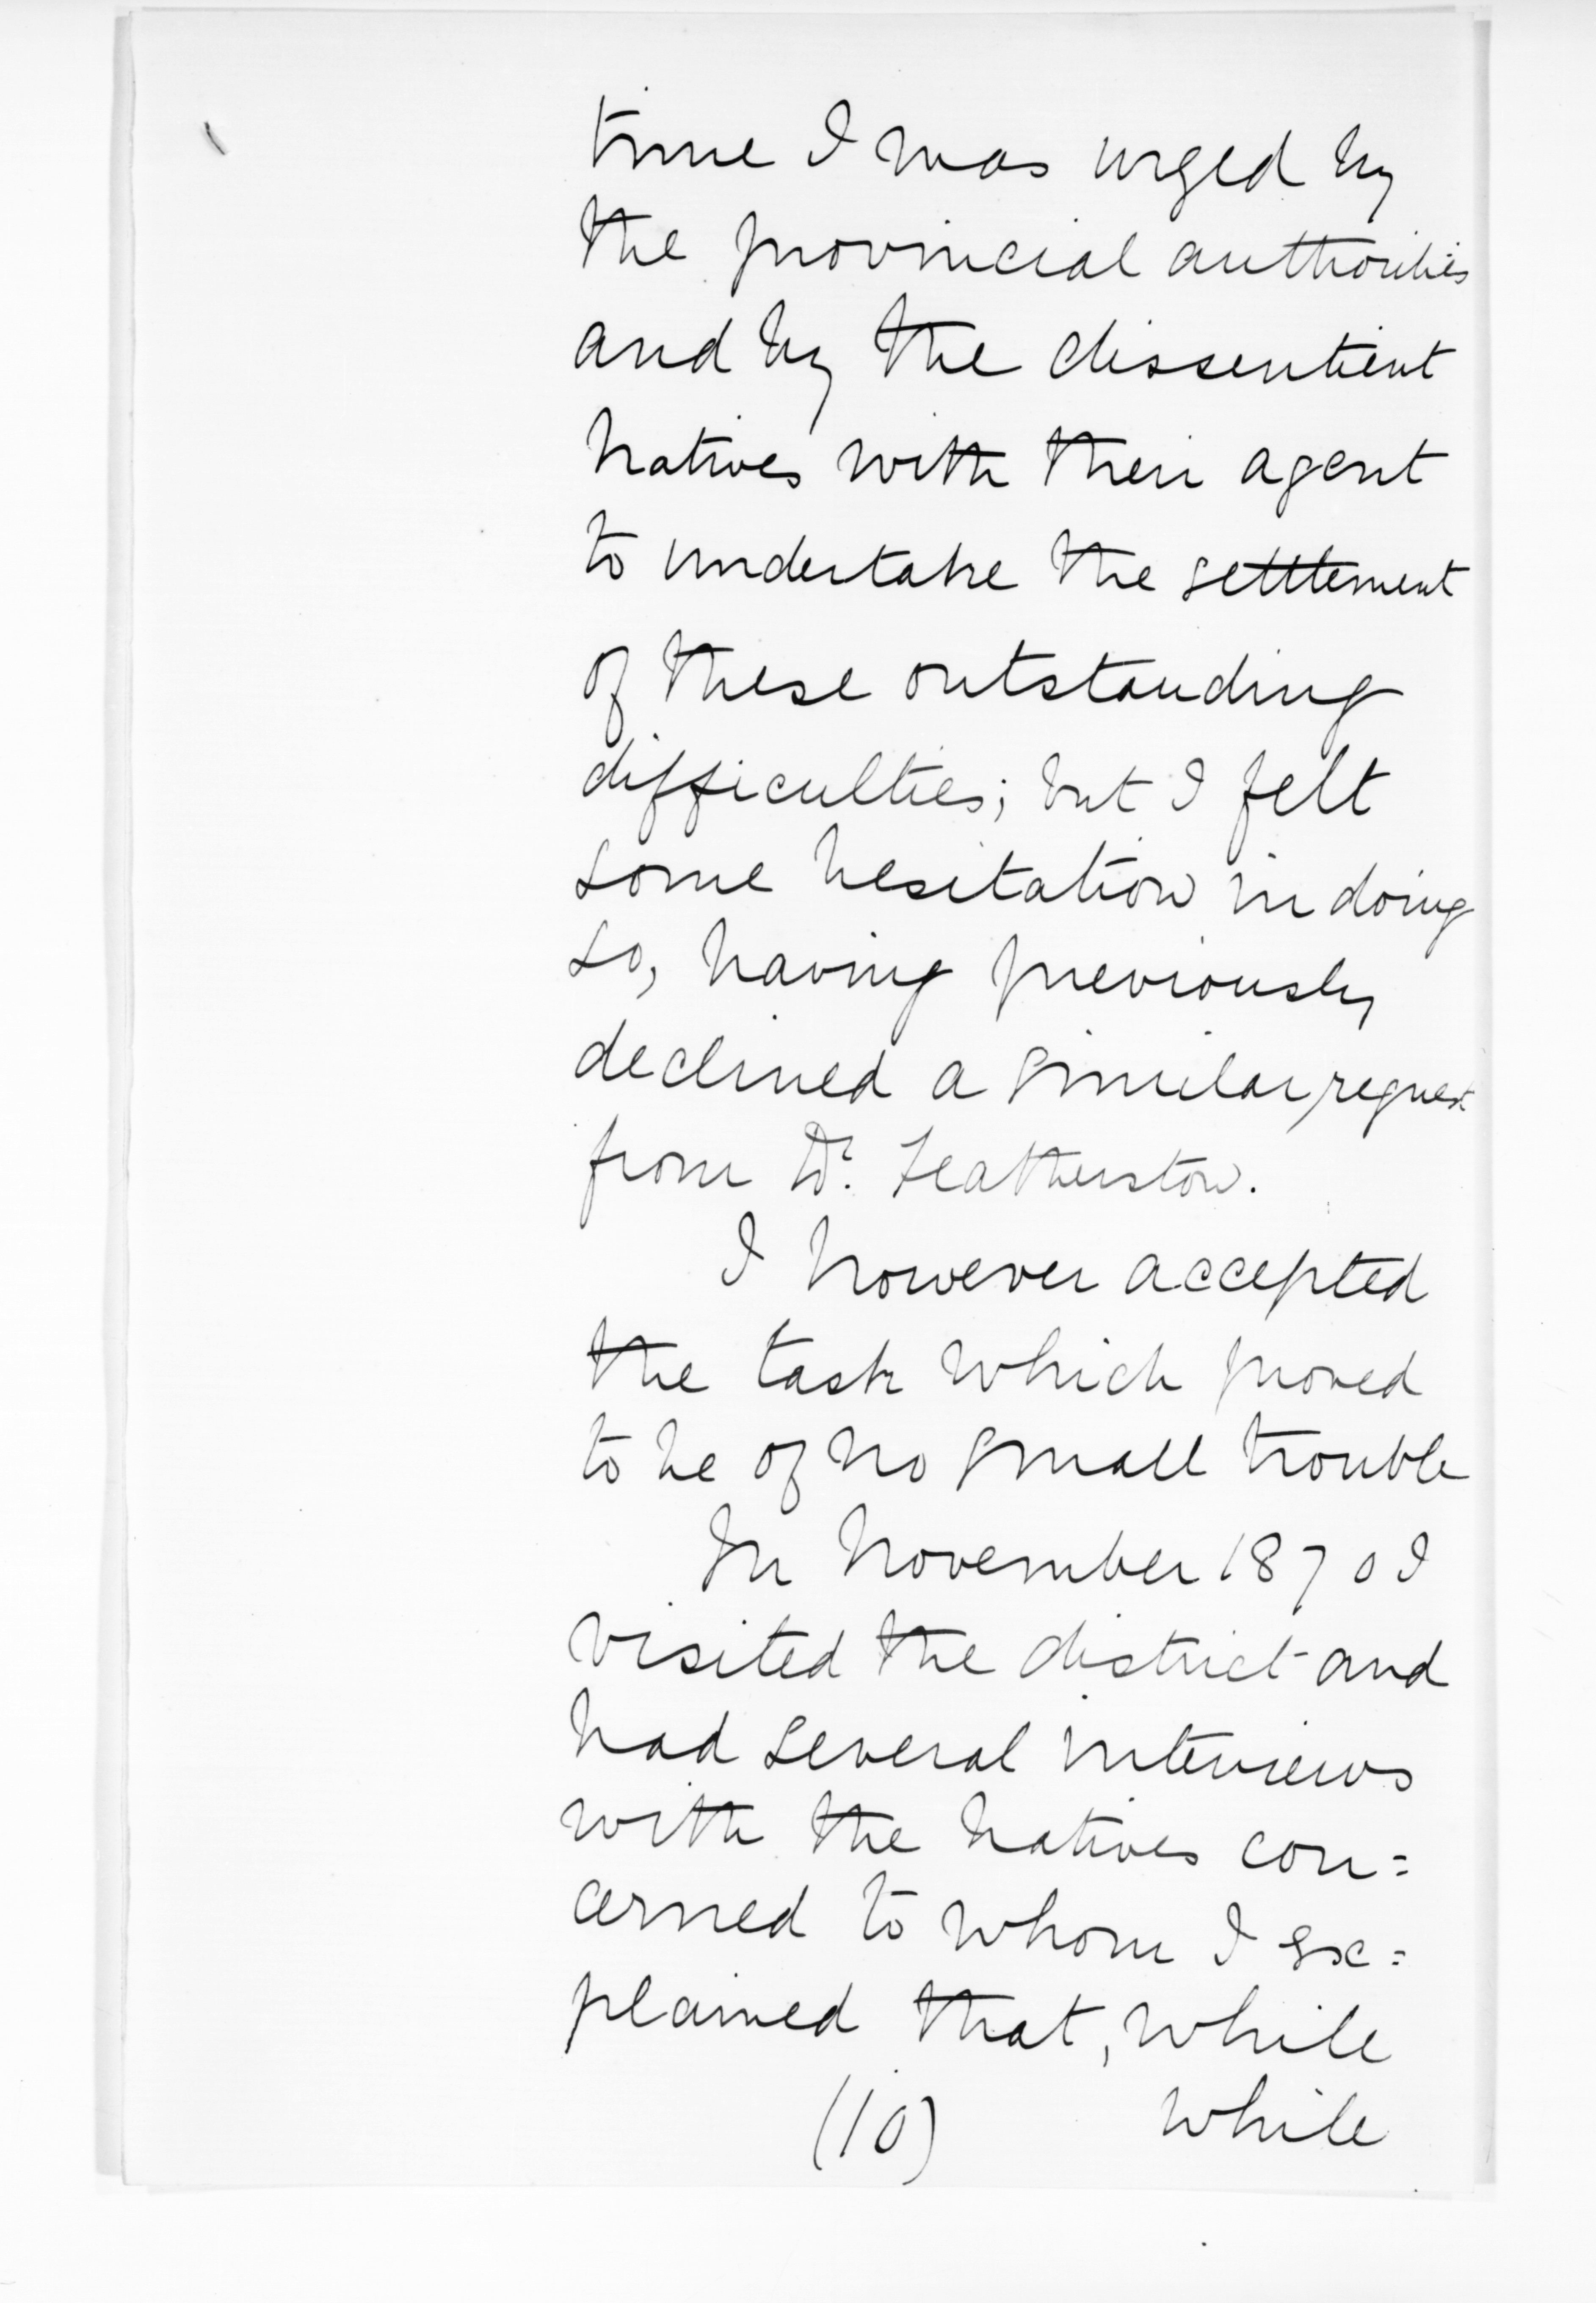 time I was urged by
the provincial authorities
and by the dissentient
natives with their agent
to undertake the settlement
of these outstanding
difficulties; but I felt
some hesitation in doing
so, having previously
declined a similar request
from Dr. Featherston.
I however accepted
the task which proved
to be of no small trouble
In November 1870 I
visited the district and
had several interviews
with the natives con=
cerned to whom I ex=
plained that, while
(10) while